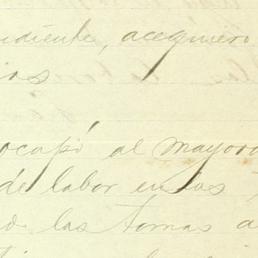 udiente, acequiero
ios
ocapó al mayord
de labor en las
do las tomas a